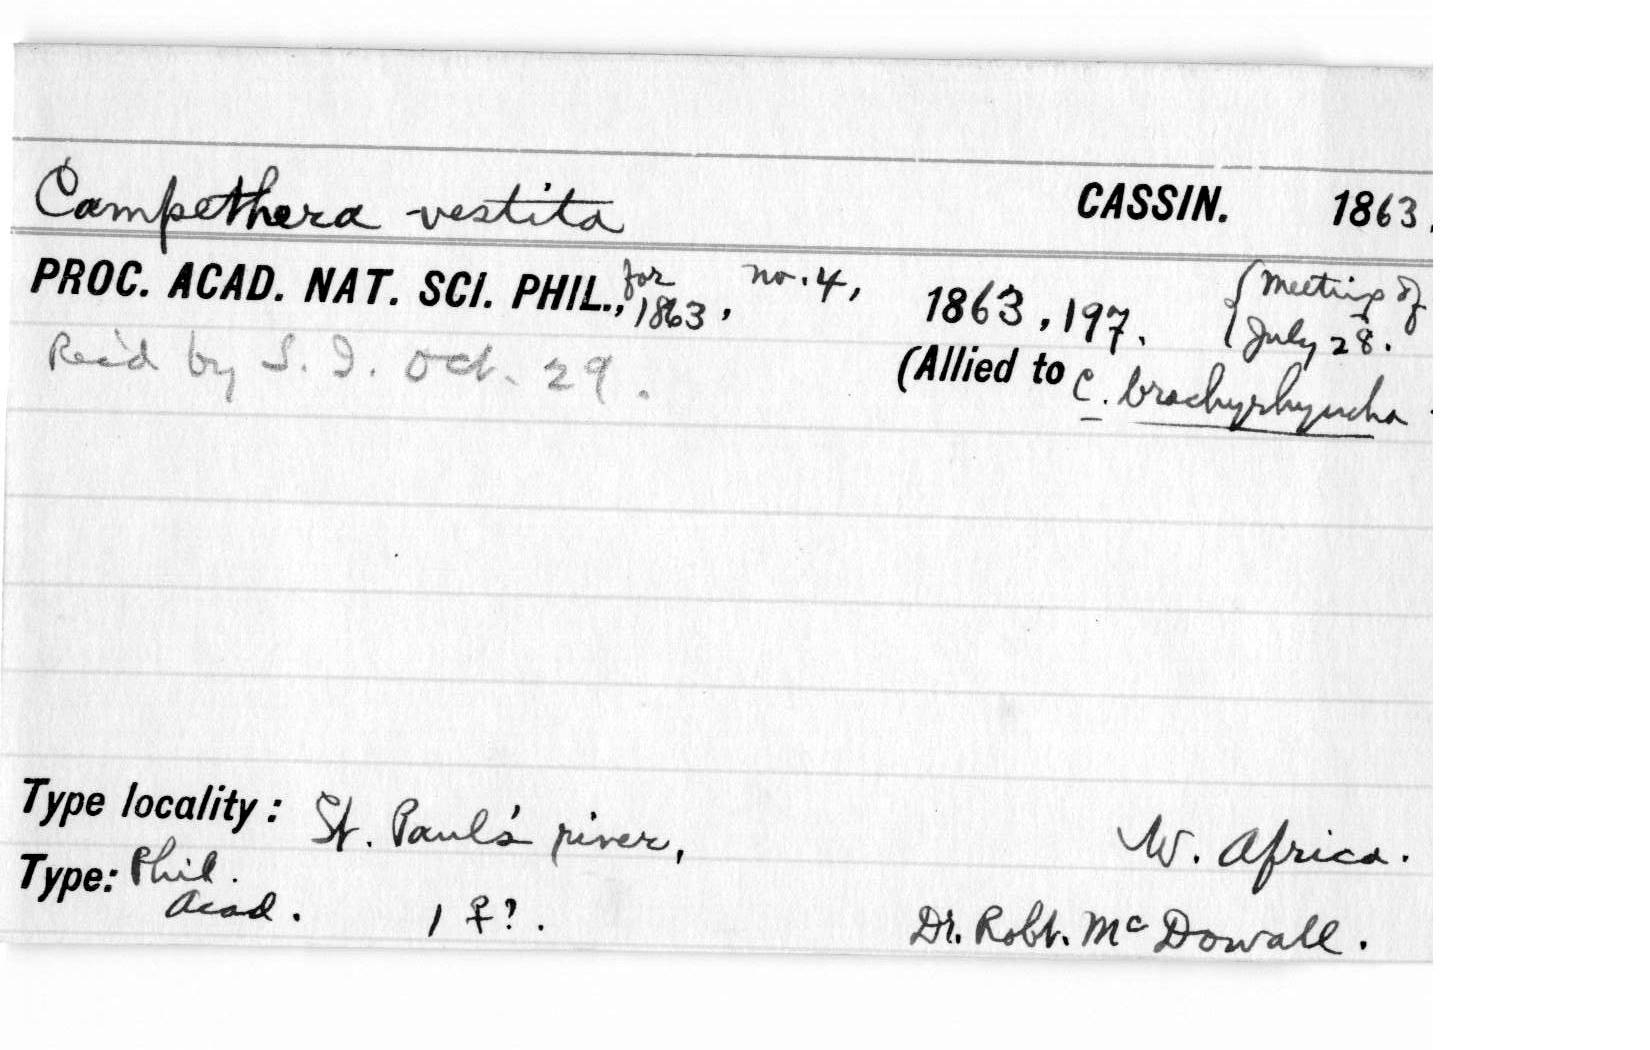 Campethera vestita CASSIN. 1863.
PROC. ACAD. NAT. SCI. PHIL., for 1863, no. 4, 1863, 197. {Meeting of July 28.
Rec'd by S. I. Oct. 29.
(Allied to C. brachyrhyncha.
Type locality: St. Paul's river, W. Africa.
Type: Phil. Acad. 1 ♀?. Dr. Robt. McDowall.